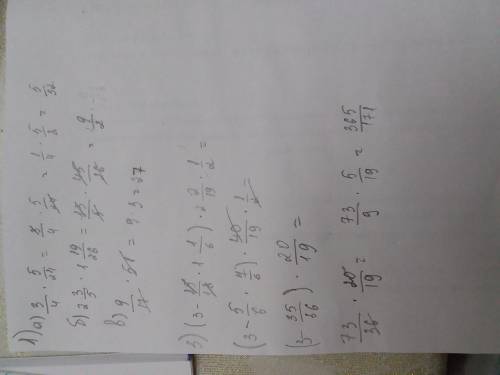 1) а) 3/4 · 5/24 = 3/4 · 5/24 = 1/4 · 5/8 = 5/32
б) 2 3/5 · 1 19/26 = 13/5 · 45/26 = 9/2
в) 9/17 · 51 = 9 · 3 = 27
3) (3 − 15/18 · 1 1/6) · 2 2/19 · 1/2 =
(3 − 5/6 · 7/6) · 40/19 · 1/2 =
(3 − 35/36) · 20/19 =
73/36 · 20/19 = 73/9 · 5/19 = 365/171